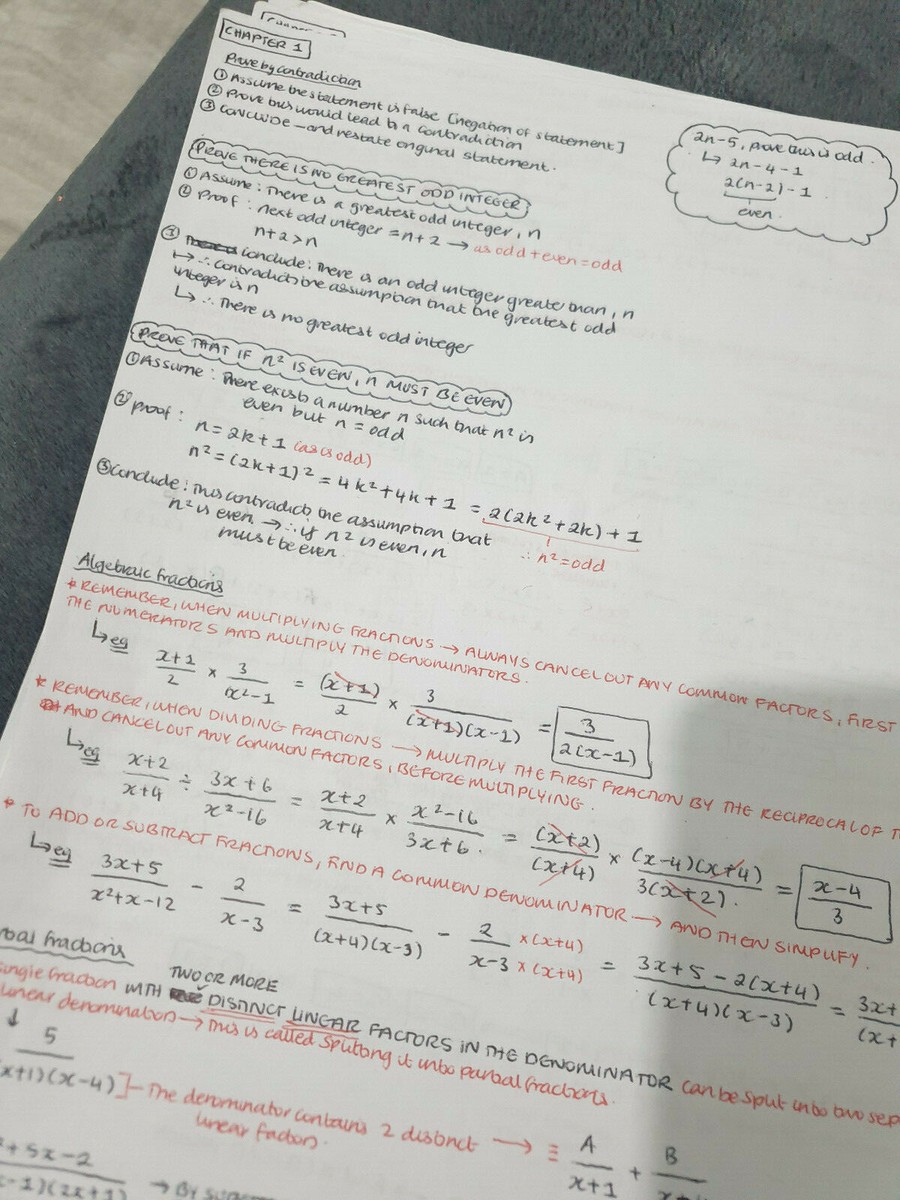 CHAPTER 1
Prove by contradiction
① Assume the statement is false [negation of statement]
② Prove this would lead to a contradiction
③ Conclude - and restate original statement.
2n-5, prove this is odd.
↳ 2n-4-1
2(n-2)-1
even.
PROVE THERE IS NO GREATEST ODD INTEGER
① Assume: There is a greatest odd integer, n
② Proof: next odd integer = n+2 → as odd + even = odd
n+2>n
③ Conclude: There is an odd integer greater than, n
↳ ∴ contradicts the assumption that the greatest odd
integer is n
↳ ∴ There is no greatest odd integer
PROVE THAT IF n² IS EVEN, n MUST BE EVEN
① Assume: There exists a number n such that n² is
even but n = odd
② Proof:
n = 2k+1 (as is odd)
n² = (2k+1)² = 4k²+4k+1 = 2(2k²+2k)+1
∴ n² = odd
③ Conclude: This contradicts the assumption that
n² is even → ∴ if n² is even, n
must be even.
Algebraic fractions
* REMEMBER, WHEN MULTIPLYING FRACTIONS → ALWAYS CANCEL OUT ANY COMMON FACTORS, FIRST
THE NUMERATORS AND MULTIPLY THE DENOMINATORS.
↳ eg (x+1)/2 × 3/(x²-1) = (x+1)/2 × 3/((x+1)(x-1)) = 3/(2(x-1))
* REMEMBER, WHEN DIVIDING FRACTIONS → MULTIPLY THE FIRST FRACTION BY THE RECIPROCAL OF
AND CANCEL OUT ANY COMMON FACTORS, BEFORE MULTIPLYING.
↳ eg (x+2)/(x+4) ÷ (3x+6)/(x²-16) = (x+2)/(x+4) × (x²-16)/(3x+6) = (x+2)/(x+4) × (x-4)(x+4)/(3(x+2)) = (x-4)/3
* TO ADD OR SUBTRACT FRACTIONS, FIND A COMMON DENOMINATOR → AND THEN SIMPLIFY.
↳ eg (3x+5)/(x²+x-12) - 2/(x-3) = (3x+5)/((x+4)(x-3)) - 2/(x-3) ×(x+4)/×(x+4) = (3x+5-2(x+4))/((x+4)(x-3)) =
fractions
TWO OR MORE
single fraction WITH DISTINCT LINEAR FACTORS IN THE DENOMINATOR can be split into two
linear denomination → This is called splitting it into partial fractions.
↓
5/((x+1)(x-4)) ] - The denominator contains 2 distinct → ≡ A/(x+1) + B
linear factors.
+5x-2
-1)(2x+1) → By